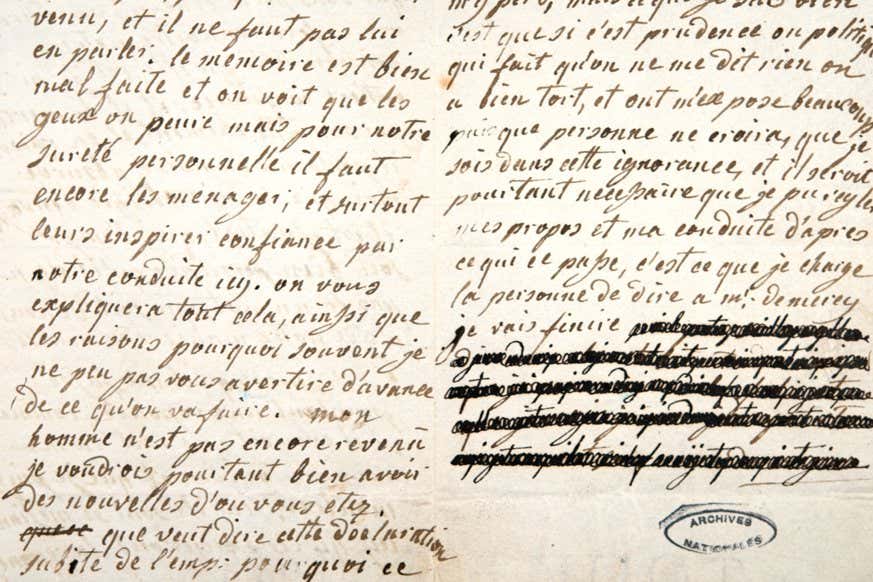 venu, et il ne faut pas lui
en parler. le mémoire est bien
mal faite et on voit que les
geux on peure mais pour notre
sureté personnelle il faut
encore les ménager, et surtout
leurs inspirer confiance par
notre conduite icy. on vous
expliquera tout cela, ainssi que
les raisons pourquoi souvent je
ne peu pas vous avertire d'avance
de ce qu'on va faire. mon
homme n'est pas encore revenû
je voudrois pourtant bien avoir
des nouvelles d'ou vous etez.
que veut dire cette declaration
subite de l'emp: pourquoi ce
c'est que si c'est prudence ou politiq
qui fait qu'on ne me dit rien on
a bien tort, et ont m'expose beaucoup
puisque personne ne croira, que je
sois dans cette ignorance, et il seroit
pourtant necessaire que je pu regler
mes propos et ma conduite d'apres
ce qui ce passe, c'est ce que je charge
la personne de dire a mr. de mercy
je vais finire
ARCHIVES
NATIONALES